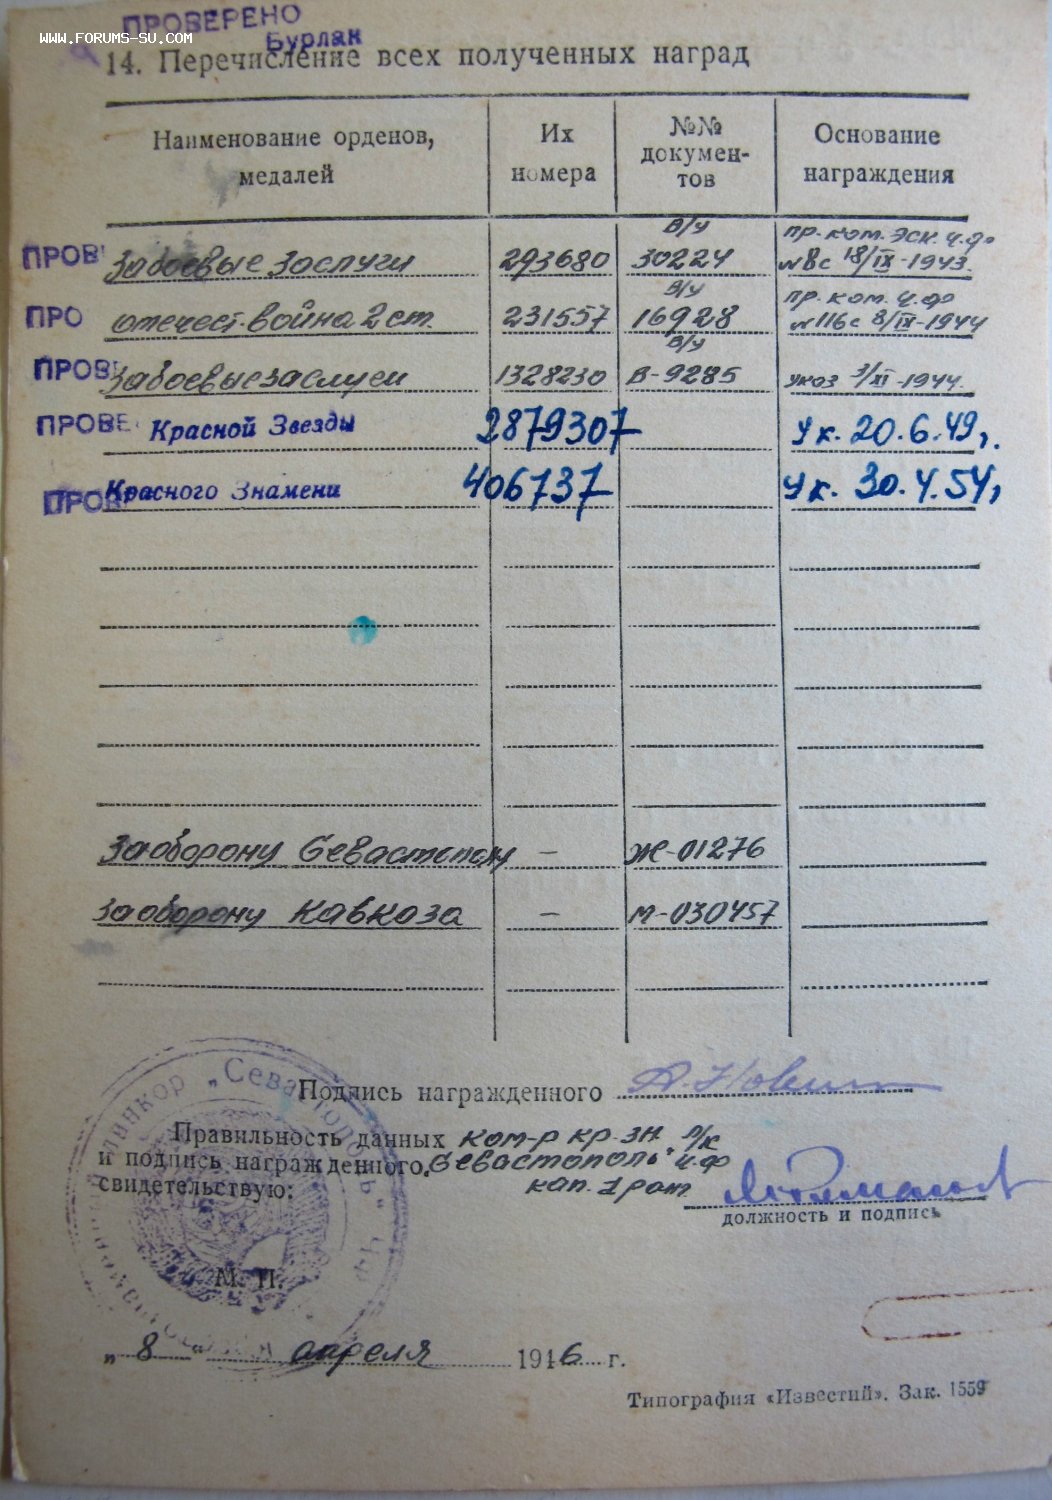 ПРОВЕРЕНО
www.forums-su.com
Бурлак
14. Перечисление всех полученных наград
Наименование орденов, медалей
Их номера
№№ докумен-тов
Основание награждения
ПРОВ За боевые зослуги 293680 В/У 30224 пр. ком. эск. ч.ф №8с 18/IX-1943.
ПРО отечест. война 2 ст. 231557 В/У 16928 пр. ком. ч.ф №116с 8/IX-1944
ПРОВ За боевые заслуги 1328230 В/У В-9285 указ 3/XI-1944.
ПРОВЕ Красной Звезды 2879307 Ук. 20.6.49,.
ПРОВ Красного Знамени 406737 Ук. 30.4.54,
За оборону Севастополя - Ж-01276
За оборону Кавкоза - М-030457
Подпись награжденного
Правильность данных ком-р кр. зн. л/к
и подпись награжденного „Севастополь" ч.ф
свидетельствую: кап. 1 ранг.
должность и подпись
линкор „Севастополь" ЧФ
М. П.
„ 8 " апреля 1946 г.
Типография «Известий». Зак. 1559